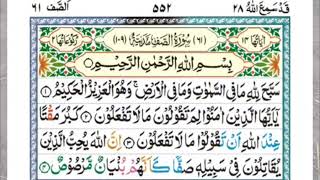 قَدْ سَمِعَ اللّٰهُ ٢٨ ٥٥٢ الصَّف ٦١
اٰيَاتُهَا ١٤ (٦١) سُوْرَةُ الصَّفِّ مَدَنِيَّةٌ (١٠٩) رُكُوْعَاتُهَا ٢
بِسْمِ اللّٰهِ الرَّحْمٰنِ الرَّحِيْمِ
سَبَّحَ لِلّٰهِ مَا فِى السَّمٰوٰتِ وَمَا فِى الْاَرْضِ ۚ وَهُوَ الْعَزِيْزُ الْحَكِيْمُ ١
يٰۤاَيُّهَا الَّذِيْنَ اٰمَنُوْا لِمَ تَقُوْلُوْنَ مَا لَا تَفْعَلُوْنَ ٢ كَبُرَ مَقْتًا
عِنْدَ اللّٰهِ اَنْ تَقُوْلُوْا مَا لَا تَفْعَلُوْنَ ٣ اِنَّ اللّٰهَ يُحِبُّ الَّذِيْنَ
يُقَاتِلُوْنَ فِىْ سَبِيْلِهٖ صَفًّا كَاَنَّهُمْ بُنْيَانٌ مَّرْصُوْصٌ ٤